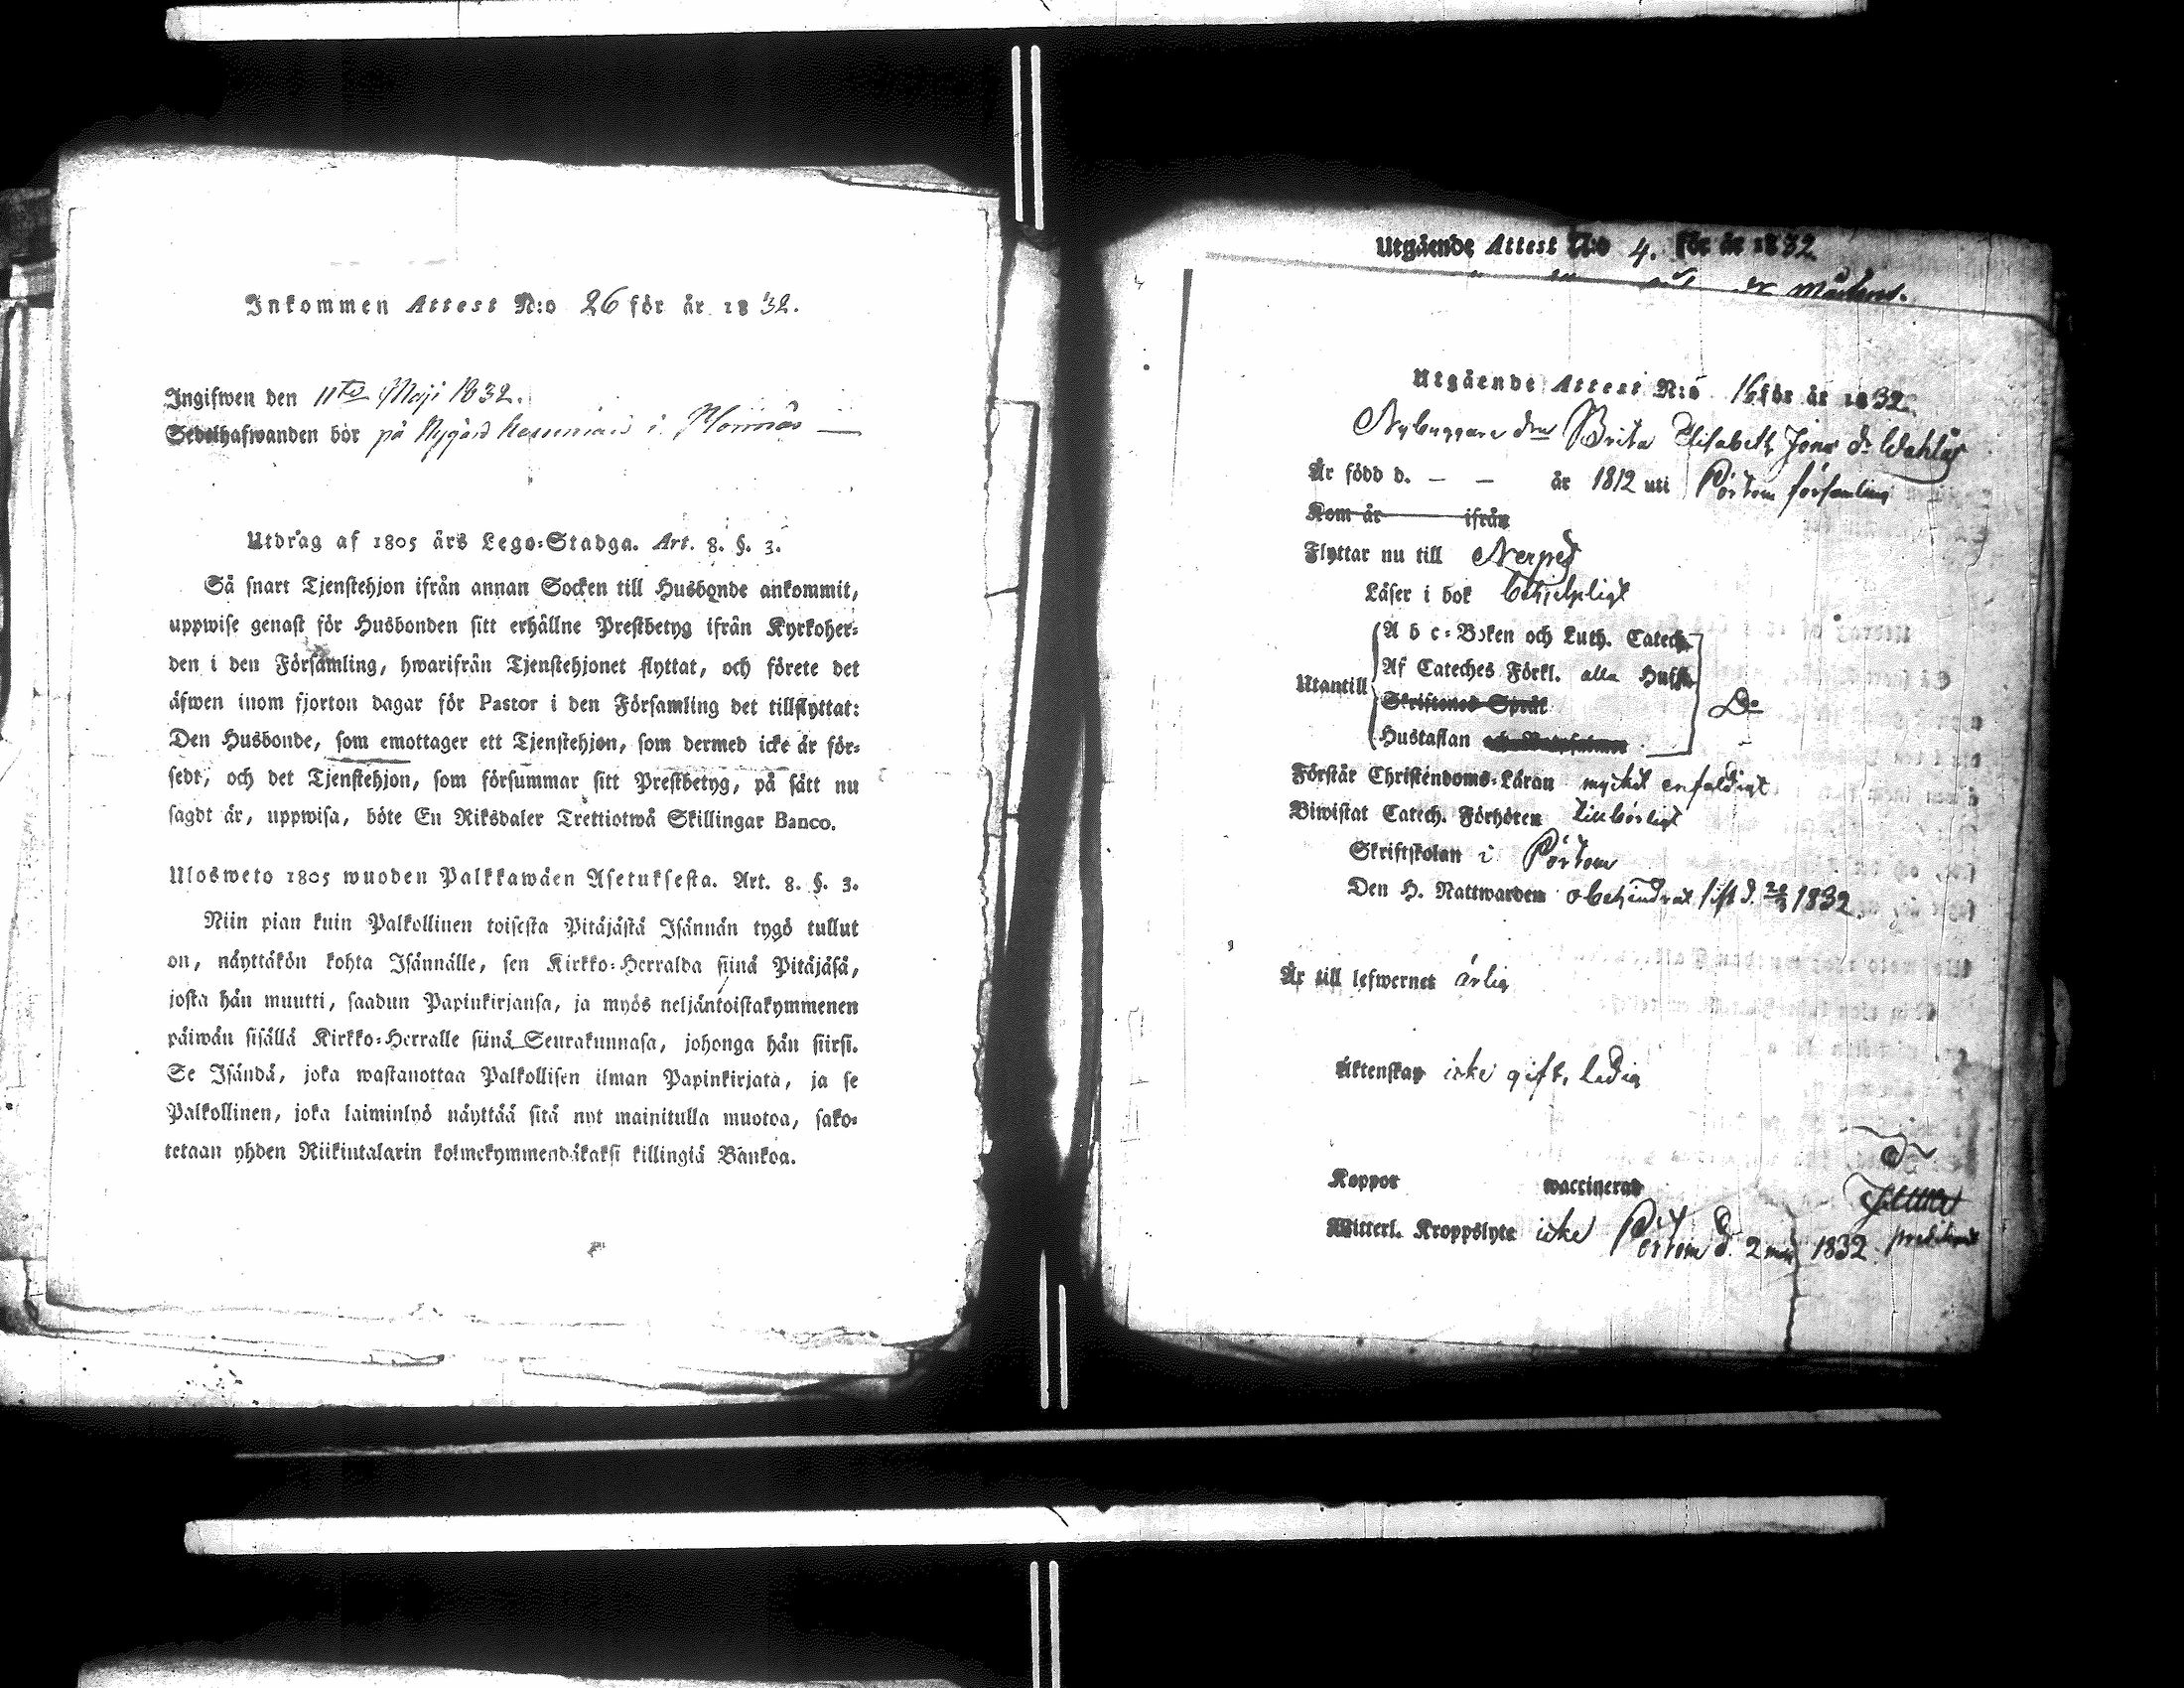 Inkommen Attest N:o 26 för år 1832.
Ingifwen den 11te Maji 1832.
Sedelhafwanden bor på Nygård i
Utdrag af 1805 års Lego-Stadga. Art. 8. §. 3.
Så snart Tjenstehjon ifrån annan Socken till Husbonde ankommit,
uppwise genast för Husbonden sitt erhållne Prestbetyg ifrån Kyrkoher-
den i den Församling, hwarifrån Tjenstehjonet flyttat, och förete det
äfwen inom fjorton dagar för Pastor i den Församling det tillflyttat:
Den Husbonde, som emottager ett Tjenstehjon, som dermed icke är för-
sedt, och det Tjenstehjon, som försummar sitt Prestbetyg, på sätt nu
sagdt är, uppwisa, böte En Riksdaler Trettiotwå Skillingar Banco.
Ulosweto 1805 wuoden Palkkawäen Asetuksesta. Art. 8. §. 3.
Niin pian kuin Palkollinen toisesta Pitäjästä Isännän tygö tullut
on, näyttäkön kohta Isännälle, sen Kirkko-Herralda siinä Pitäjäsä,
josta hän muutti, saadun Papinkirjansa, ja myös neljäntoistakymmenen
päiwän sisällä Kirkko-Herralle siinä Seurakunnasa, johonga hän siirsi.
Se Isändä, joka wastanottaa Palkollisen ilman Papinkirjata, ja se
Palkollinen, joka laiminlyö näyttää sitä nyt mainitulla muotoa, sako-
tetaan yhden Riikintalarin kolmekymmendäkaksi killingiä Bankoa.
Utgående Attest N:o 4. för år 1832
Utgående Attest N:o 16 för år 1832.
Nybyggare dr Brita Elisabeth Jons dr
Är född d. — — år 1812 uti Pörtom församling
Kom år ifrån
Flyttar nu till Nerpes
Läser i bok behjelpligt
Utantill
A b c-Boken och Luth. Catech.
Af Cateches Förkl. alla Hufst.
Skriftenes Språk
Hustaflan
Do
Förstår Christendoms-Läran mycket enfaldigt
Biwistat Catech. Förhören tillbörligt
Skriftskolan i Pörtom
Den H. Nattwarden obehindrat sist d. 1832.
Är till lefwernet ärlig
Äktenskap icke gift, ledig
Koppor waccinerad
Witterl. Kroppslyte icke Pörtom d. 2 maj 1832